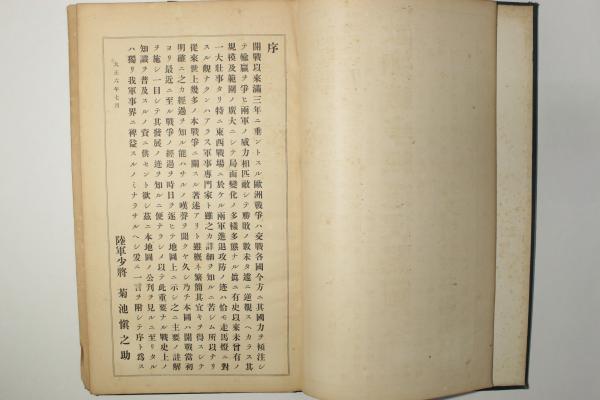 序
開戰以來滿三年ニ垂ントスル歐洲戰爭ハ交戰各國今方ニ其國力ヲ傾注シ
テ輸贏ヲ爭ヒ兩軍ノ威力相匹敵シテ勝敗ノ數未タ遽ニ逆覩スヘカラス其
規模及範圍ノ廣大ニシテ局面變化ノ多樣多態ナル眞ニ有史以來未曾有ノ
一大壯事タリ特ニ東西戰場ニ於ケル兩軍進退攻防ノ迹ハ恰モ走馬燈ニ對
スル觀ナクンハアラス軍事專門家ト雖之カ詳細ヲ知ルニ苦シム所以ナリ
從來世上幾多ノ本戰爭ニ關スル著述アリト雖槪ネ繁簡其宜キヲ得スシテ
明確ニ之カ經過ヲ知ル能ハサルノ嘆聲ヲ聞クヤ久シ乃チ本圖ハ開戰當初
ヨリ最近ニ至ル戰爭ノ經過ヲ時日ヲ逐ヒテ地圖上ニ示シ之ニ主要ノ註解
ヲ施シ一目シテ其發展ノ迹ヲ知ルニ便テラシメ以テ此重要ナル戰史上ノ
知識ヲ普及スルノ資ニ供セント欲シ茲ニ本地圖ノ公刊ヲ見ルニ至リタル
ハ獨リ我軍事界ニ裨益スルノミナラサルヘシ爰ニ一言ヲ附シテ序ト爲ス
陸軍少將 菊池愼之助
大正六年七月